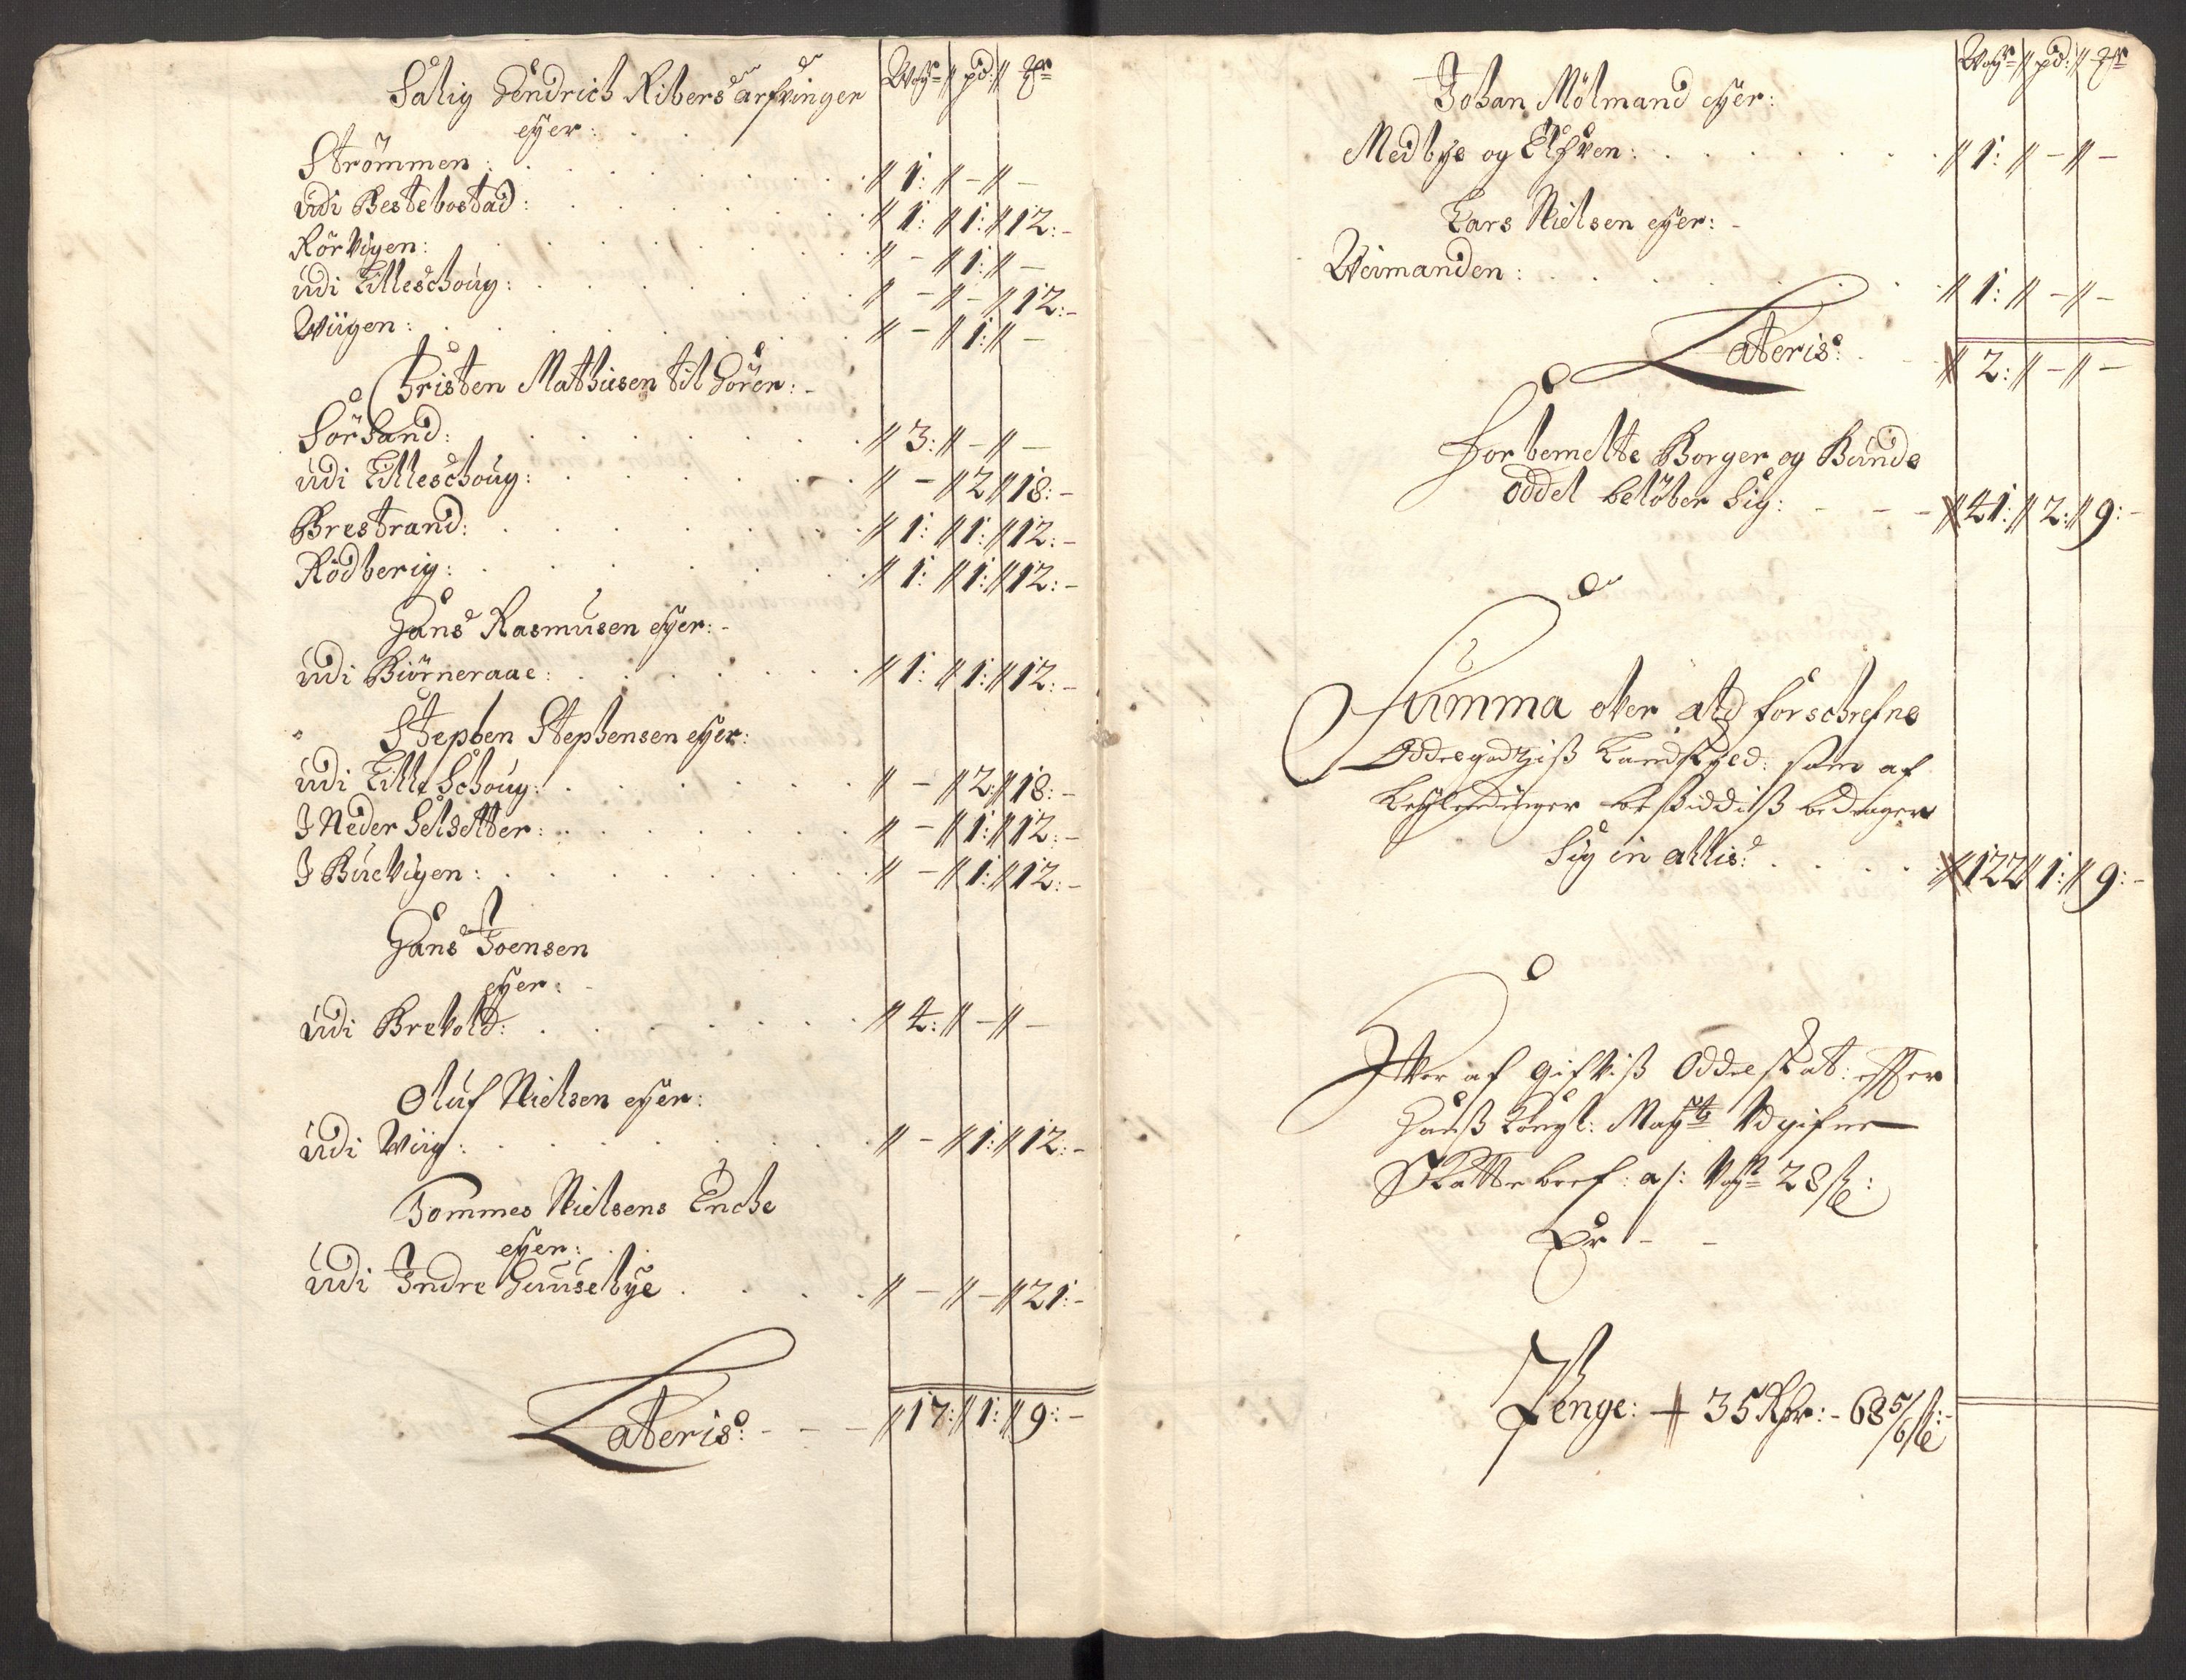 Salig Hendrich Ribers arfvinger Wog: pd: ℔r
eyer:
Strömmen: 1: - -
udi Bestebostad: 1: 1: 12:-
Rörvigen: - 1: -
udi Lilleschoug: - - 12:-
Wiigen: - 1: -
Christen Mathiesen til Hören:-
Sörsand: 3: - -
udi Lilleschoug: - 2 18:-
Brestrand: 1: 1: 12:-
Rödberig: 1: 1: 12:-
Hans Rasmusen eyer:-
udi Biörneraae: 1: 1: 12:-
Stephen Stephensen eyer:
udi Lille Schoug: - 2: 18:-
I Neder Selsetter: - 1: 12:-
I Buevigen: - 1: 12:-
Hans Joensen
eyer:
udi Brevold: 4: - -
Oluf Nielsen eyer:
udi Wiig: - 1: 12:-
Tommes Nielsens Enche
eyer:
udi Indre Huusebye - - 21:-
Lateris: 17: 1: 9:-
Wog: pd: ℔r
Johan Mölmand eyer:
Medbye og Elfven: 1: - -
Lars Nielsen eyer:-
Weimanden: 1: - -
Lateris: 2: - -
Forbemelte Borger og Bunde
Oddel belöber Sig: 41: 2: 9:-
Summa ober ald forschrefne
Oddelgodziss Landskyld: som af
besiddiss bedrager
Sig in allis: 122 1: 9:-
Hvor af gifviss Oddelskat: effter
Hanss Kongl: Maytz Udgifne
Skattebref: a/: Wog 28 ß:
Er - -
Penge: 35 Rdr:- 68 5/6 ß:-